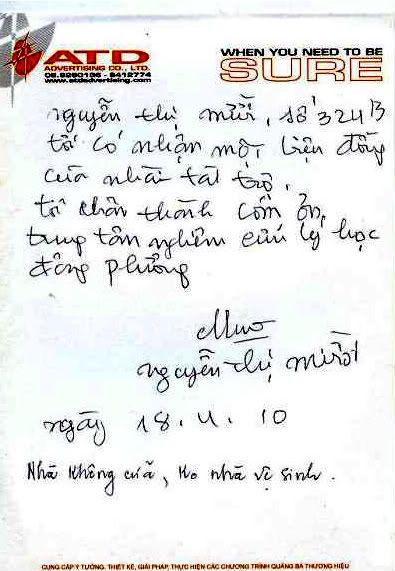 ATD
ADVERTISING CO., LTD.
08.6290106 - 8412774
www.atdadvertising.com
WHEN YOU NEED TO BE
SURE
nguyễn thị mười, số 324B
tôi có nhận một triện đồng
của nhà tài trợ.
tôi chân thành cảm ơn
trung tâm nghiêm cứu lý học
đông phương
nguyễn thị mười
ngày 18. 4. 10
Nhà không cửa, ko nhà vệ sinh.
CUNG CẤP Ý TƯỞNG, THIẾT KẾ, GIẢI PHÁP, THỰC HIỆN CÁC CHƯƠNG TRÌNH QUẢNG BÁ THƯƠNG HIỆU